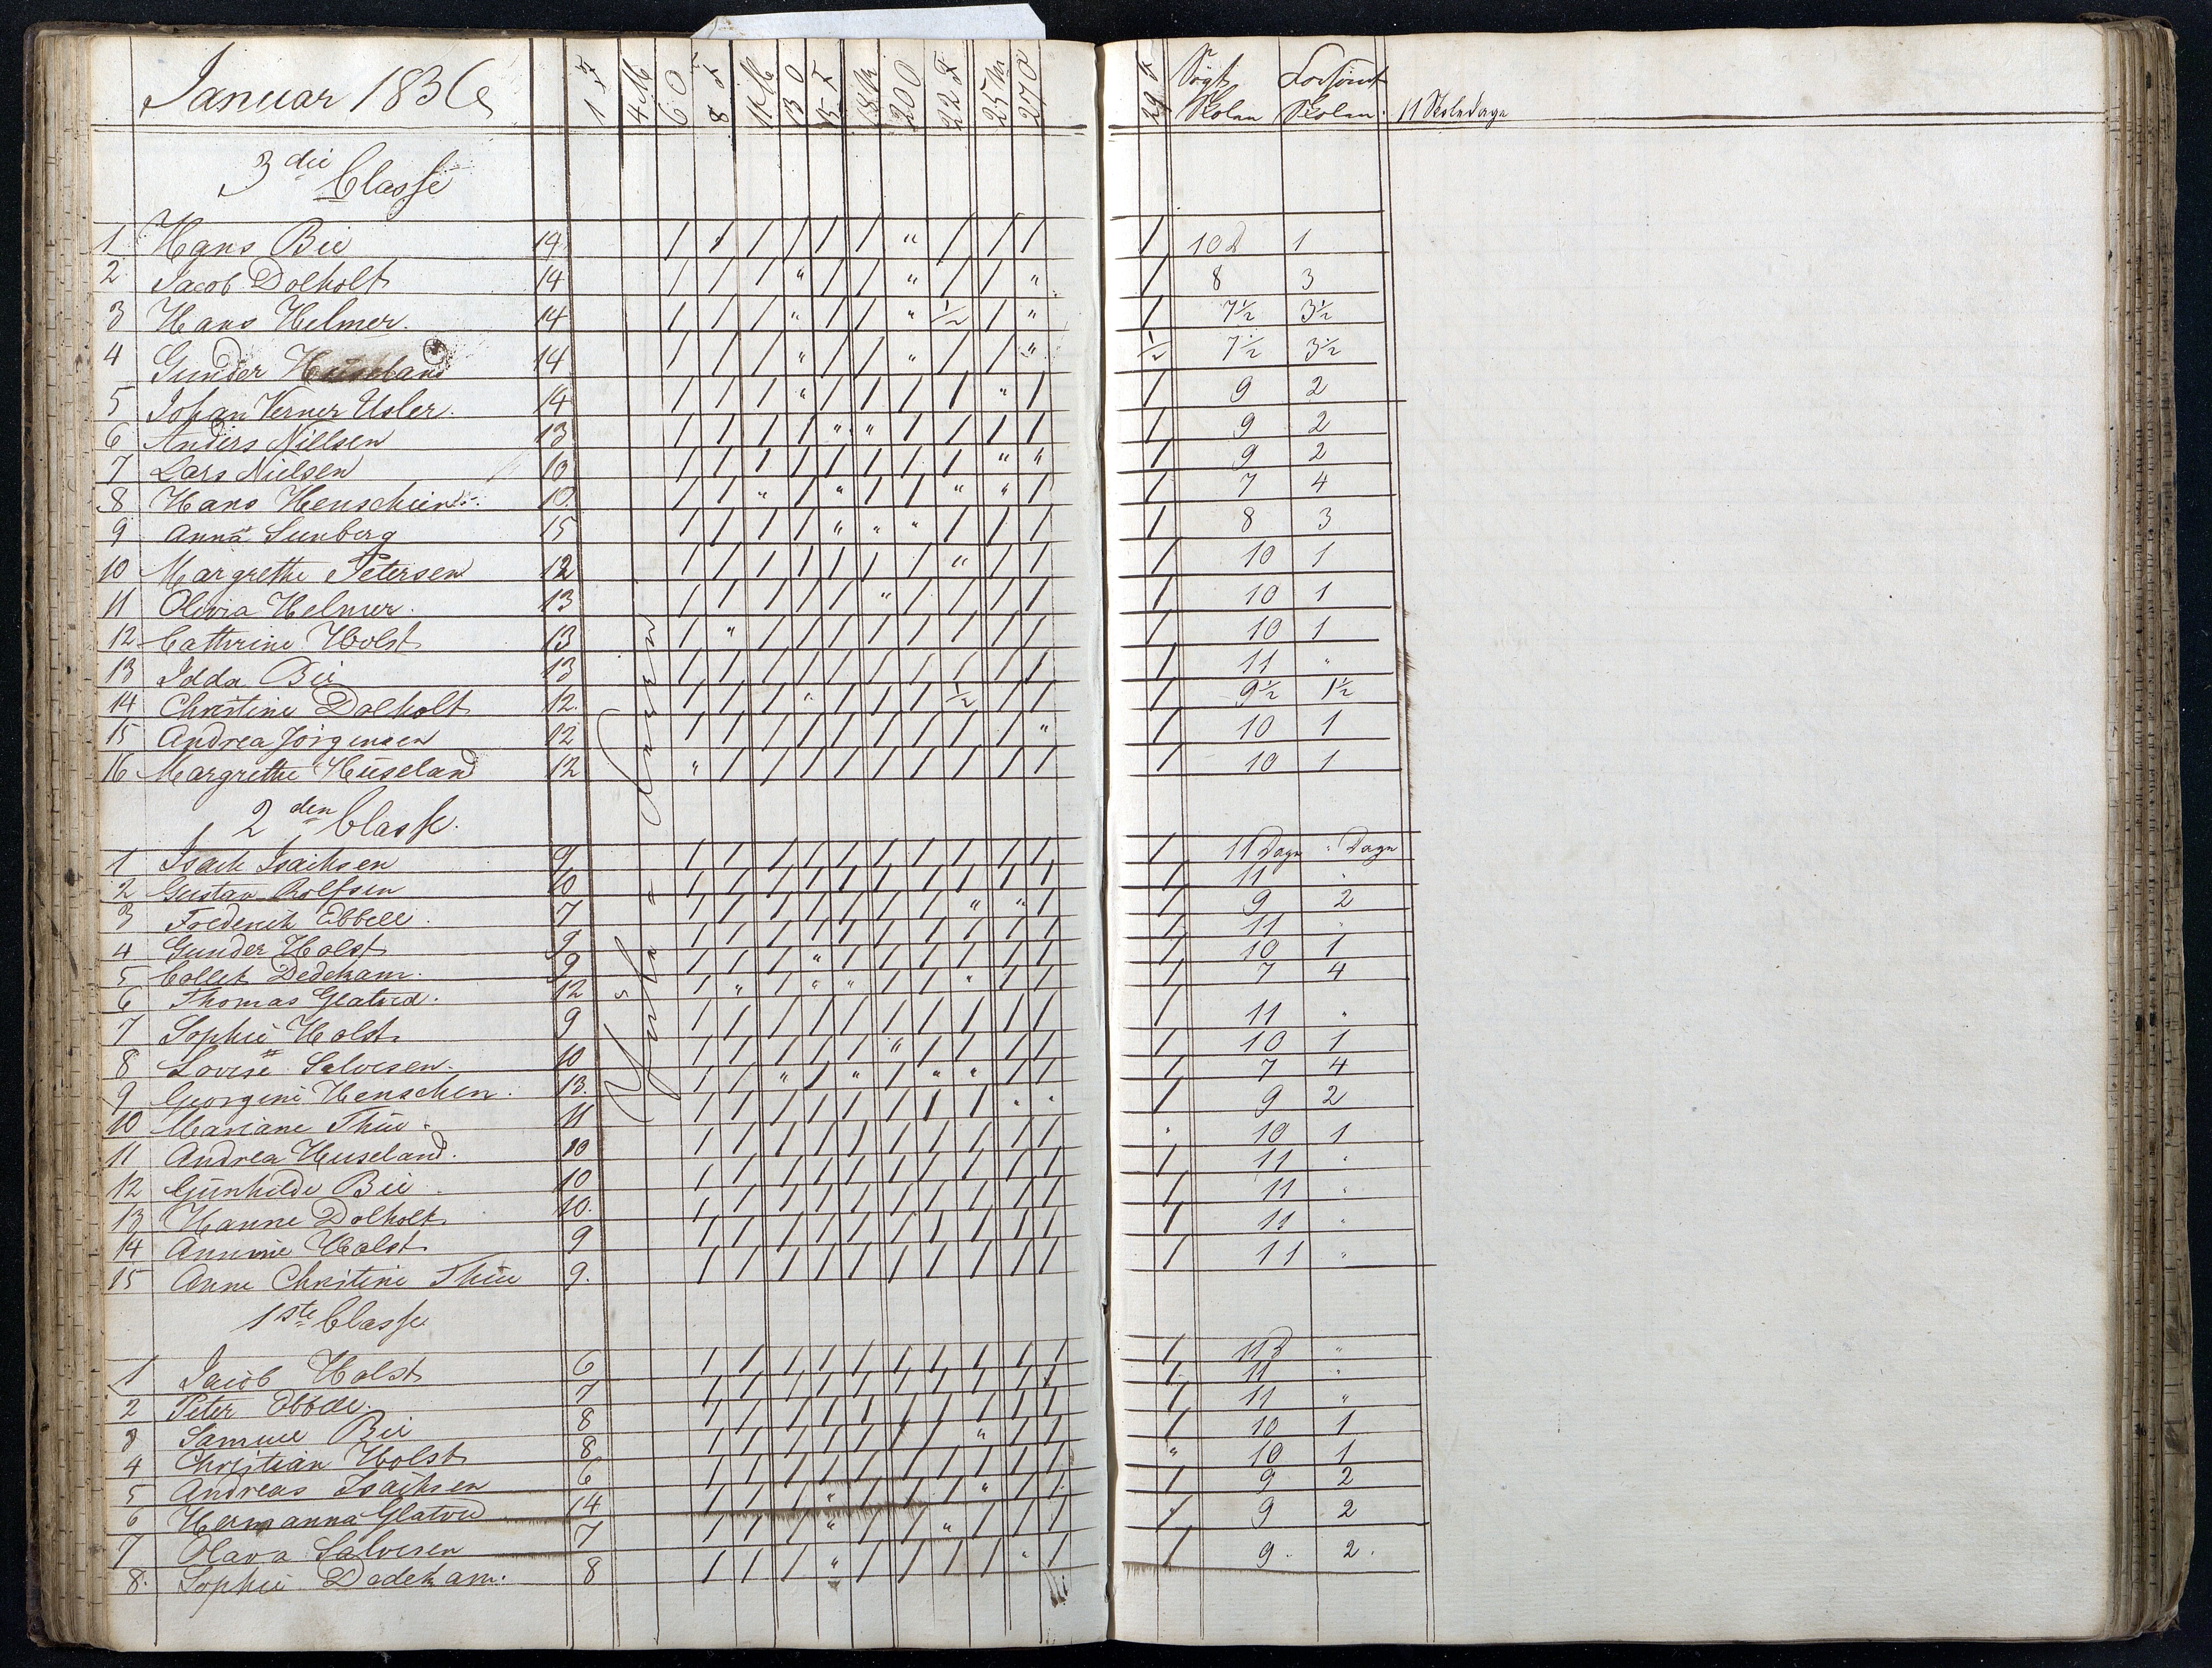 Januar 1836 1 F 4 M 6 O 8 F 11 M 13 O 15 F 18 M 20 O 22 F 25 M 27 O 29 F Søgt Skolen Forsømt Skolen. 11 Skoledage
3die Classe
1 Hans Bie 14 / / / / / / " / / / / 10 D 1
2 Jacob Dolholt 14 / / / " / / " / / " / 8 3
3 Hans Helmer. 14 / / / " / / " ½ / " / 7½ 3½
4 Gunder Huseland 14 / / / " / / " / / " ½ 7½ 3½
5 Johan Verner Usler. 14 / / / " / / / / " / / 9 2
6 Anders Nillsen 13 / / / / " " / / / / / 9 2
7 Lars Nielsen 10 / / / / / / / / " " / 9 2
8 Hans Henschien 10. / / " / " / / " " / / 7 4
9 Anna Sunberg 15 / / / / " " " / / / / 8 3
10 Margrethe Petersen 12 / / / / / / / " / / / 10 1
11 Olivia Helmer. 13 / / / / / " / / / / / 10 1
12 Cathrine Holst 13 / " / / / / / / / / / 10 1
13 Idda Bie 13 / / / / / / / / / / / 11 "
14 Christine Dolholt 12. / / / " / / / ½ / / / 9½ 1½
15 Andrea Jörgensen 12 / / / / / / / / / " / 10 1
16 Margrethe Huseland 12 " / / / / / / / / / / 10 1
2den Classe.
1 Isack Isachsen 9 / / / / / / / / / / / 11 Dage " Dage
2 Gustav Rolfsen 10 / / / / / / / / / / / 11 "
3 Frederich Ebbell. 7 / / / / / / / " " / / 9 2
4 Gunder Holst 9 / / / / / / / / / / / 11 "
5 Collet Dedekam. 9 / / / " / / / / / / / 10 1
6 Thomas Glatved. 12 / " / " " / / " / / / 7 4
7 Sophie Holst 9 / / / / / / / / / / / 11 "
8 Lovise Salvesen. 10 / / / / / " / / / / / 10 1
9 Georgine Henschen. 13. / / " / " / " " / / / 7 4
10 Mariane Thue. 11 / / / / / / / / " " / 9 2
11 Andrea Huseland. 10 / / / / / / / / / / " 10 1
12 Gunhilde Bie. 10 / / / / / / / / / / / 11 "
13 Hanne Dolholt 10. / / / / / / / / / / / 11 "
14 Annine Holst 9 / / / / / / / / / / / 11 "
15 Anne Christine Thue 9. / / / / / / / / / / / 11 "
1ste Classe
1 Jacob Holst 6 / / / / / / / / / / / 11 D "
2 Peter Ebbell. 7 / / / / / / / / / / / 11 "
3 Samuel Bie 8 / / / / / / / / / / / 11 "
4 Christian Holst 8 / / / / / / / " / / / 10 1
5 Andreas Isachsen 6 / / / / / / / / / / " 10 1
6 Hermanna Glatved 14 / / / " / / / " / / / 9 2
7 Olava Salvesen 7 / / / " / / " / / / / 9 2
8. Sophie Dedekam. 8 / / / " / / / / " / / 9. 2.